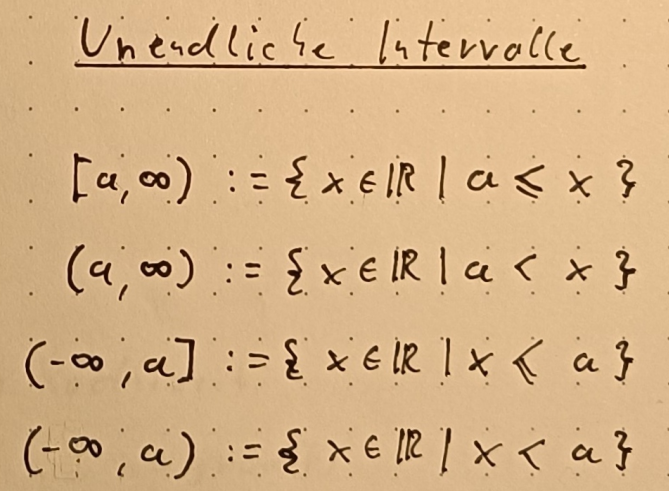 Unendliche Intervalle
[a,∞) := { x ∈ ℝ | a ⩽ x }
(a,∞) := { x ∈ ℝ | a < x }
(-∞,a] := { x ∈ ℝ | x ⩽ a }
(-∞,a) := { x ∈ ℝ | x < a }